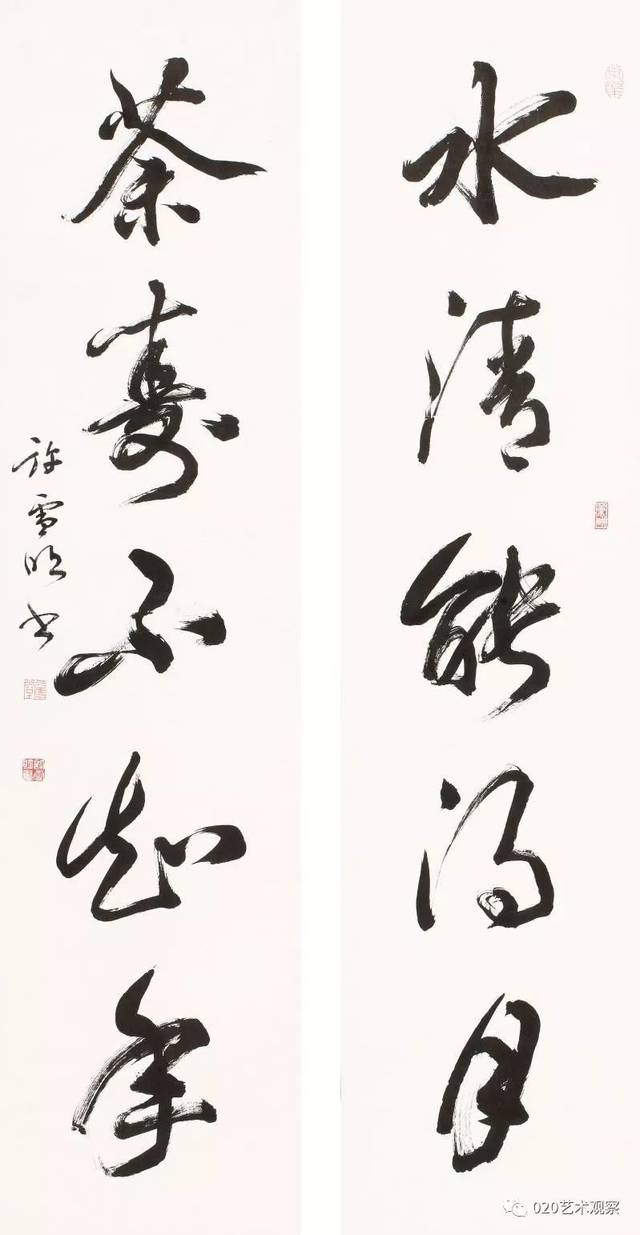 水清能得月
茶寿不知年
许雪明书
020艺术观察